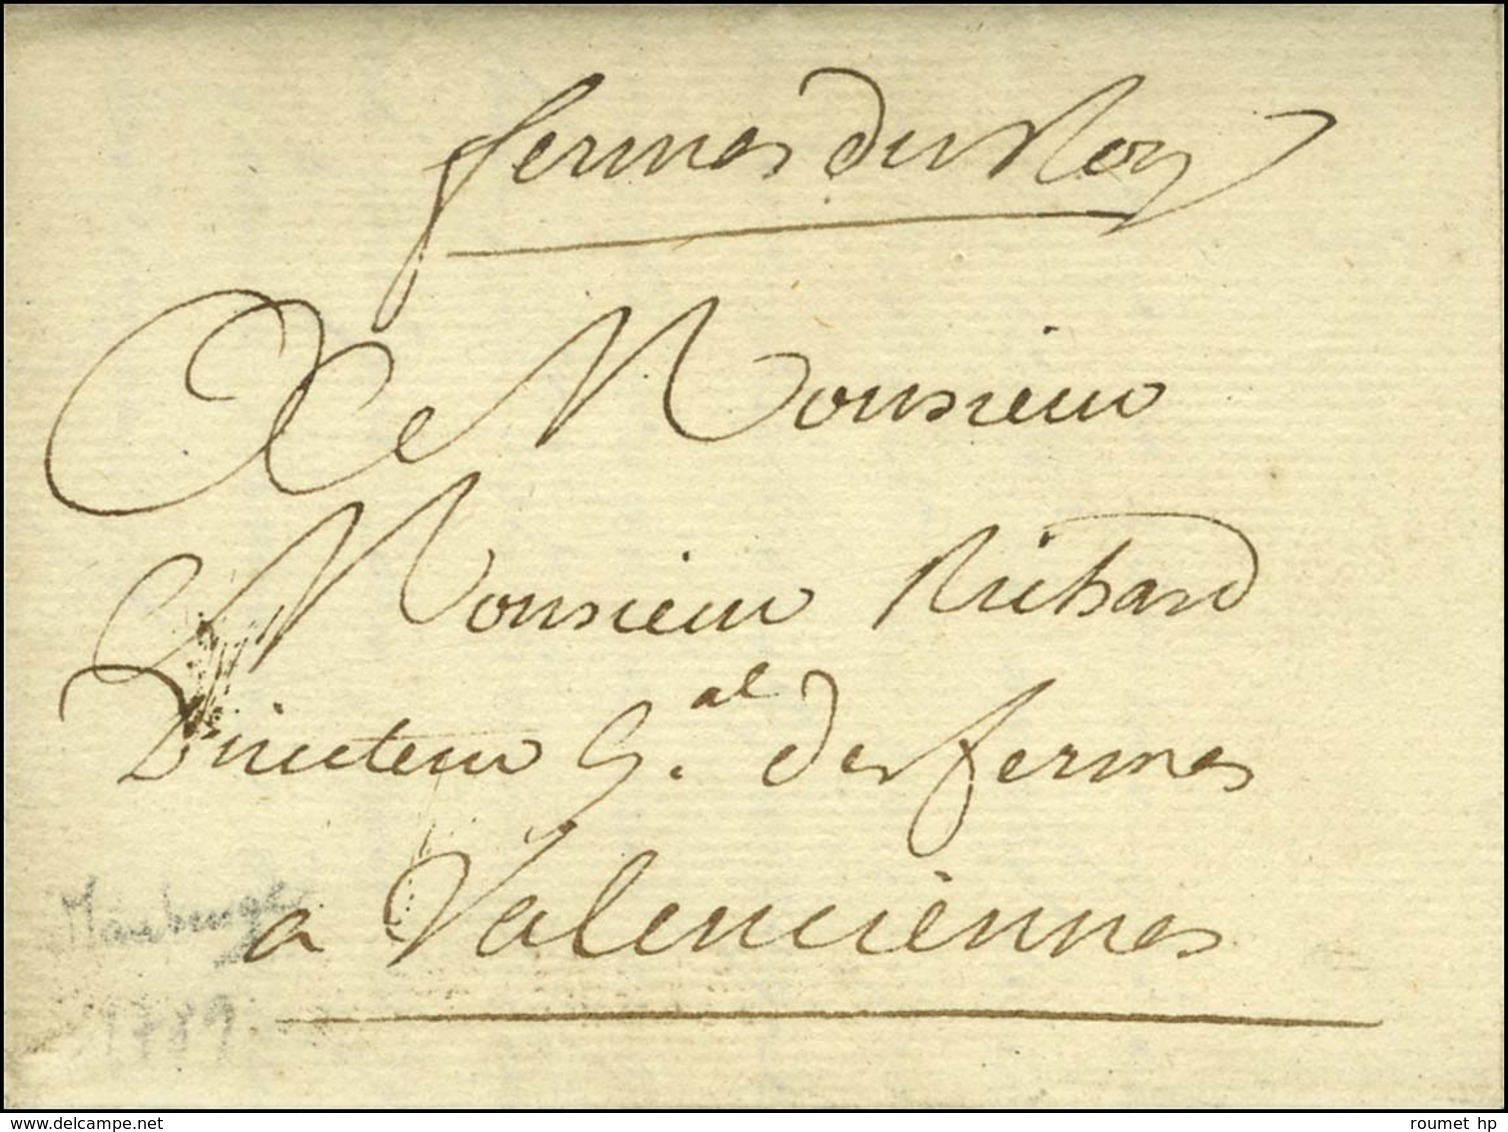 fermes du Roy
A Monsieur
Monsieur Richard
Directeur G.al des fermes
a Valenciennes
Maubeuge
1789
delcampe.net
roumet hp